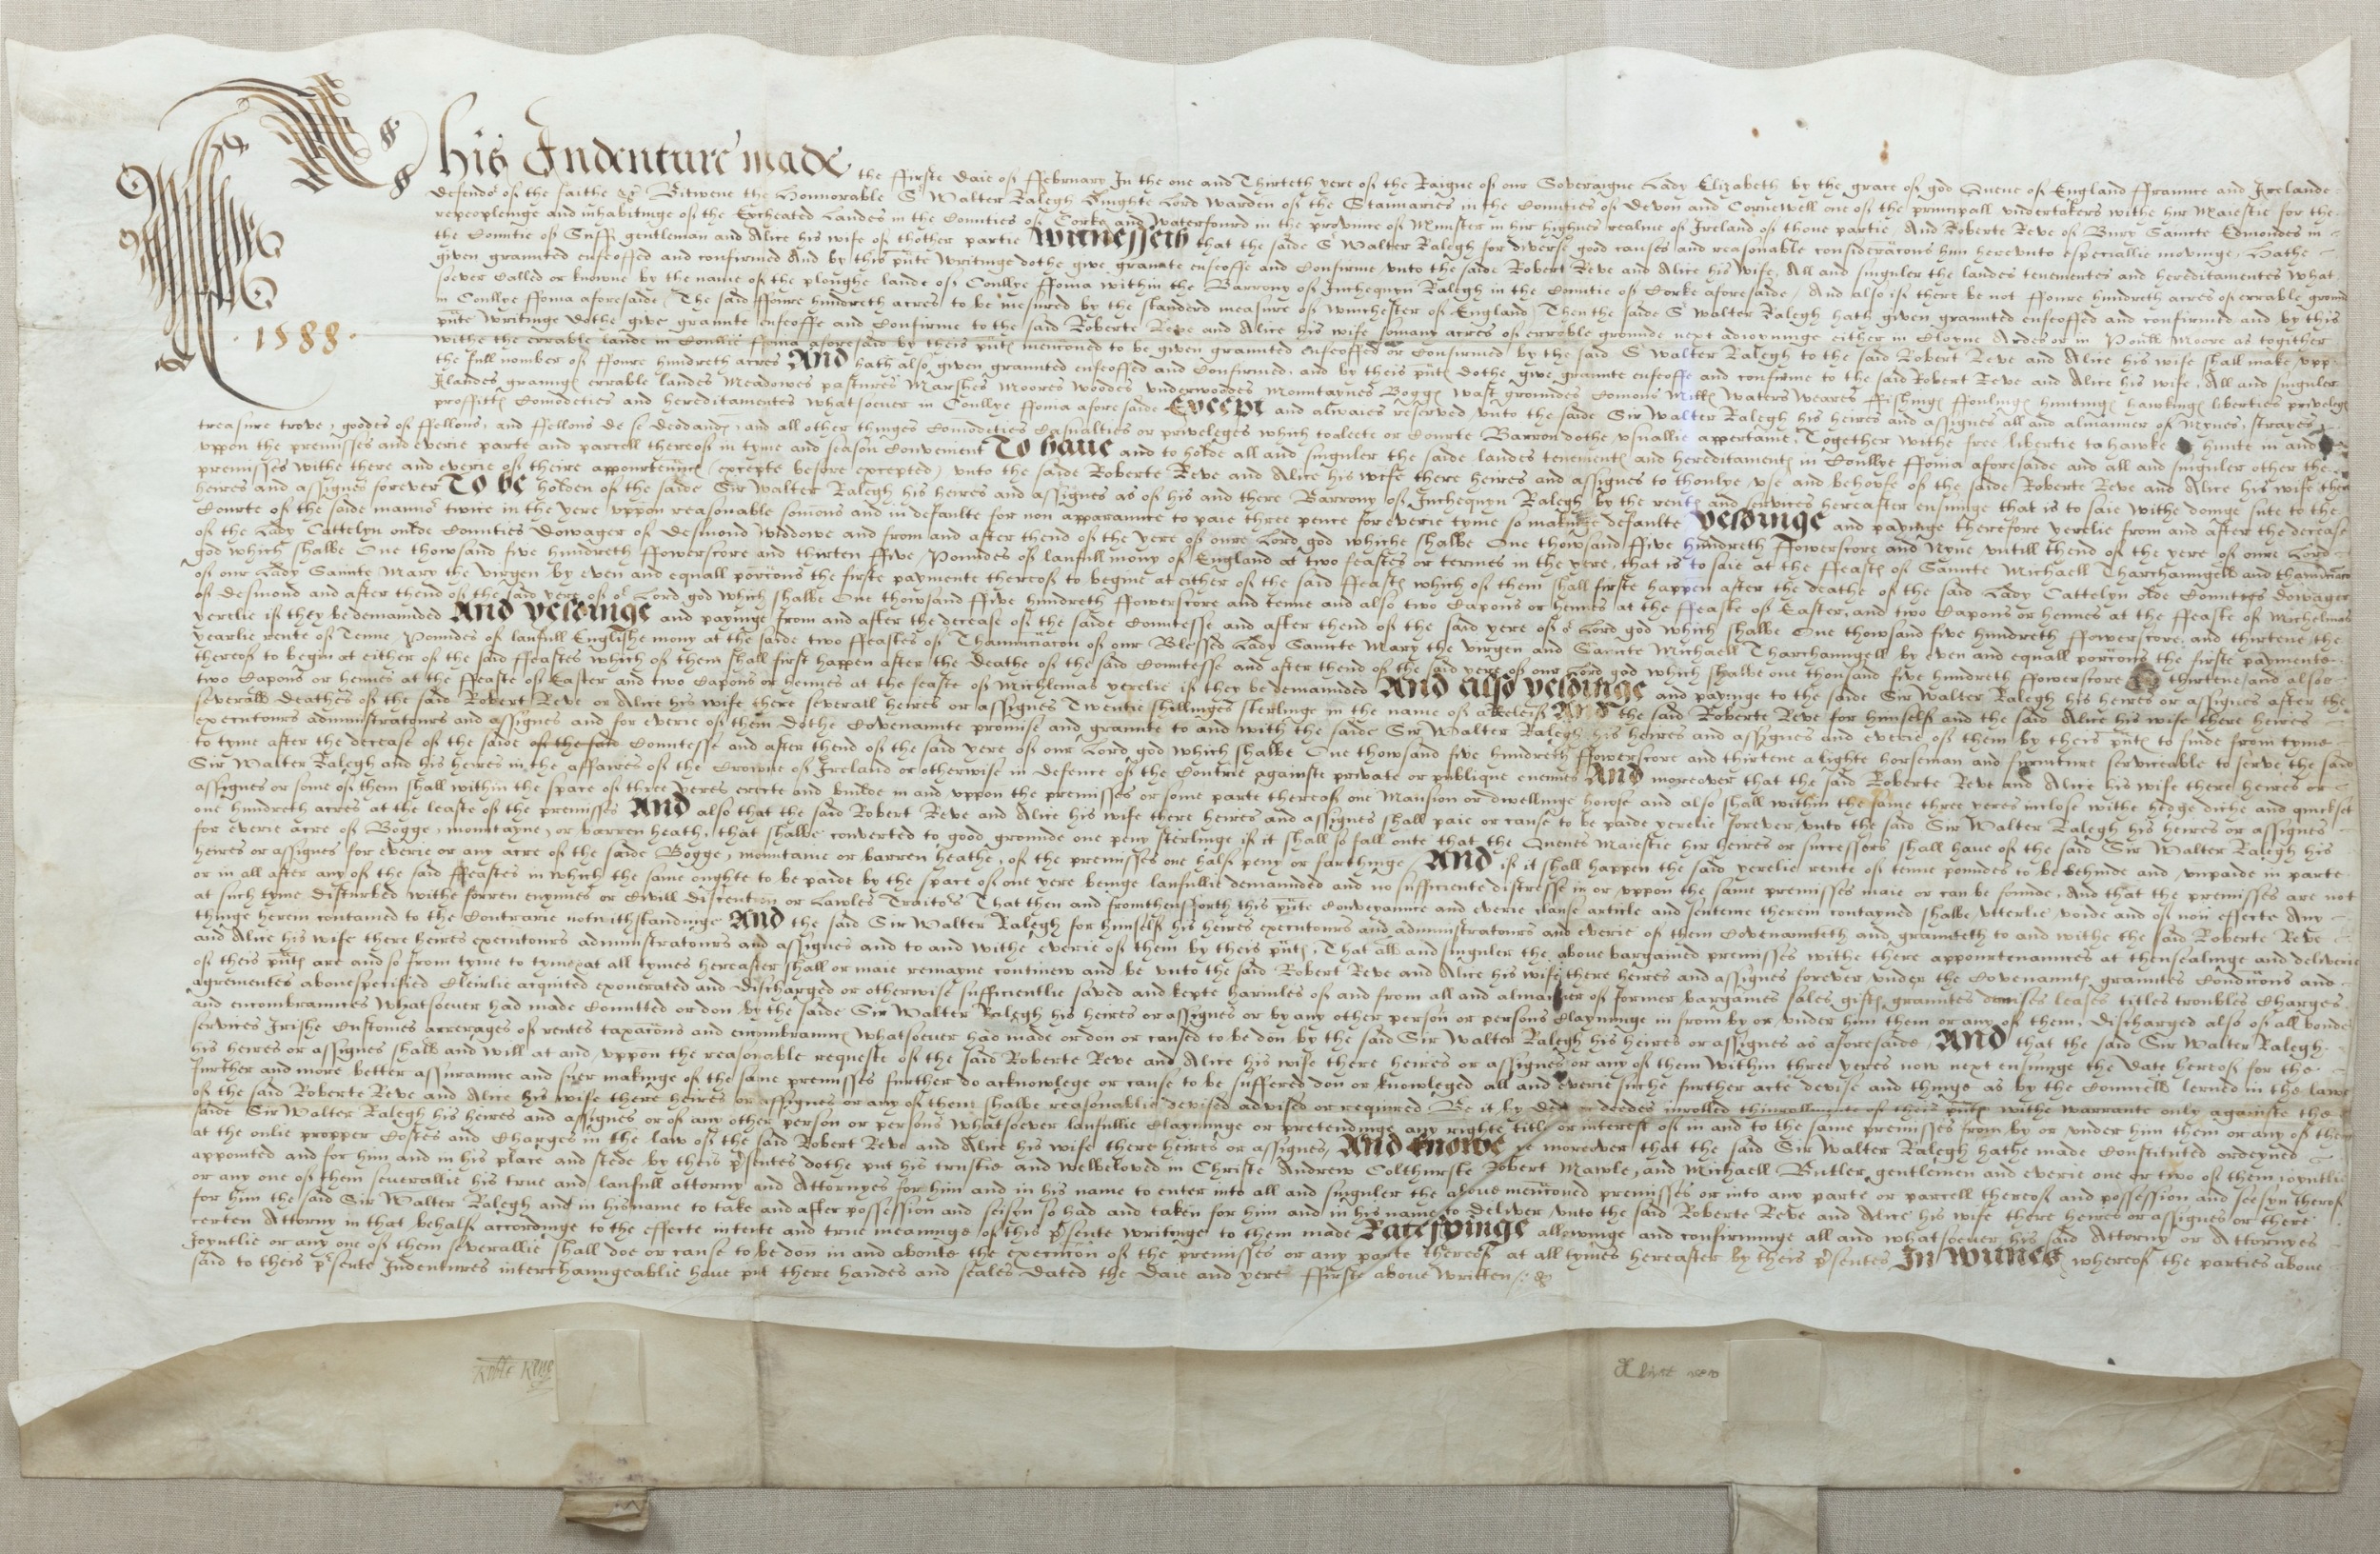 This Indenture made the ffirste daie of ffebruary In the one and Thirteth yere of the Raigne of our Soveraigne Lady Elizabeth by the grace of god Quene of England ffraunce and Irelande
defendor of the faithe &c Bitwene the Honnorable Sr Walter Ralegh Knighte Lord Warden of the Stannaries in the Counties of Devon and Cornewell one of the principall undertakers withe hir Maiestie for the
repeoplenige and inhabitinge of the Excheated Landes in the Counties of Corke and Waterfourd in the province of Munster in hir highnes realme of Ireland of thone partie, And Roberte Reve of Bury Saincte Edmondes in
the Countie of Suff gentleman and Alice his wife of thother partie Witnesseth that the saide Sr Walter Ralegh for diverse good causes and reasonable consideracons him herevnto especiallie movinge, Hathe
given graunted enfeoffed and confirmed And by this pnte Writinge dothe give graunte enfeoffe and Confirme vnto the saide Robert Reve and Alice his wife, All and singuler the landes tenementes and hereditamentes What
soever Called or knowne by the name of the ploughe lande of Coullye ffoma within the Barrony of Inchequyn Ralegh in the Countie of Corke aforesaide, And also if there be not ffoure hundreth acres of errable ground
in Coullye ffoma aforesaide, The said ffoure hundreth acres to be mesured by the standerd measure of Winchester of England, Then the saide Sr Walter Ralegh hath given graunted enfeoffed and confirmed and by this
pnte Writinge dothe give graunte enfeoffe and Confirme to the said Roberte Reve and Alice his wife somany acres of errable grounde next adioyninge either in Cloyne Ardes or in Poull Moore as togither
withe the errable lande in Coullie ffoma aforesaid by theis pntes mencioned to be given graunted enfeoffed or Confirmed by the said Sr Walter Ralegh to the said Robert Reve and Alice his wife shall make vpp
the full nomber of ffoure hundreth acres And hath also given graunted enfeoffed and Confirmed, and by theis pntes dothe give graunte enfeoffe and confirme to the said Robert Reve and Alice his wife, All and singuler
Ilandes graunges errable landes Meadowes pastures Marshes Moores Woodes vnderwoodes Mountaynes Bogges Wast groundes Comons Milles Waters Weares ffishinges ffoulinges huntinges hawkinges liberties priveleges
proffittes Comodeties and hereditamentes whatsoever in Coullye ffoma aforesaide Except and alwaies reserved vnto the saide Sir Walter Ralegh his heires and assignes all and almanner of Mynes, strayes,
treasure trove, goodes of ffellons, and ffellons de se deodandes, and all other thinges Comodeties Casualties or priveleges which toaleete or Courte Barron dothe vsuallie appertaine, Together withe free libertie to hawke hunte in and
vppon the premisses and everie parte and parcell thereof in tyme and season Convenient To haue and to holde all and singuler the saide landes tenementes and hereditamentes in Coullye ffoma aforesaide and all and singuler other the
premisses withe there and everie of theire appourtenances (excepte before excepted) vnto the saide Roberte Reve and Alice his wife there heires and assignes to thonlye vse and behoufe of the saide Roberte Reve and Alice his wife there
heires and assignes forever To be holden of the saide Sir Walter Ralegh his heires and assignes as of his and there Barrony of Inchequyn Ralegh by the rentes and services hereafter ensuinge that is to saie withe doinge sute to the
Courte of the saide mannor twice in the yere vppon reasonable somons and in defaulte for non apparaunce to paie three pence for everie tyme so makinge defaulte Yeldinge and payinge therefore yerelie from and after the decease
of the Lady Cattelyn oulde Counties Dowager of Desmond Widdowe and from and after thend of the yere of oure Lord god whiche shalbe One thowsand ffive hundreth ffowerscore and Nyne vntill thend of the yere of oure Lord
god which shalbe One thowsand five hundreth ffowerscore and thirten ffive Poundes of laufull mony of England at two feastes or termes in the yere, that is to saie at the ffeastes of Saincte Michaell Tharchaungell and thanunciacon
of our Lady Saincte Mary the virgen by even and equall porcons the firste paymente thereof to begine at either of the said ffeastes which of them shall firste happen after the deathe of the said Lady Cattelyn olde Countes dowager
of Desmond and after thend of the said yere of or Lord god which shalbe One thowsand ffive hundreth ffowerscore and tenne and also two Capons or hennes at the ffeaste of Easter, and two Capons or hennes at the ffeaste of Michelmas
yerelie if they be demaunded And yeldinge and payinge from and after the decease of the saide Countesse and after thend of the said yere of or Lord god which shalbe One thowsand five hundreth ffowerscore, and thirtene, the
yearlie rente of Tenne Poundes of laufull Englishe mony at the saide two ffeastes of Thanunciacon of our Blessed Lady Saincte Mary the virgen and Saincte Michaell Tharchaungell by even and equall porcons the firste paymente
thereof to begin at either of the said ffeastes which of them shall first happen after the Deathe of the said Countesse and after thend of the said yere of our Lord god which shalbe one thousand five hundreth ffowerscore thirtene and also
two Capons or hennes at the ffeaste of Easter and two Capons or hennes at the feaste of Michlemas yerelie if they be demaunded And also yeldinge and payinge to the saide Sir Walter Ralegh his heires or assignes after the
severall deathes of the said Robert Reve or Alice his wife there severall heires or assignes Twentie shillinges sterlinge in the name of a Releif And the said Roberte Reve for himself and the said Alice his wife there heires
executours administratours and assignes and for everie of them Dothe Covenaunte promise and graunte to and with the saide Sir Walter Ralegh his heires and assignes and everie of them by theis pntes to finde from tyme
to tyme after the decease of the saide of the said Countesse and after thend of the said yere of our Lord god which shalbe One thowsand five hundreth ffowerscore and thirtene a lighte horseman and furniture serviceable to serve the said
Sir Walter Ralegh and his heires in the affaires of the Crowne of Ireland or otherwise in defence of the Contrie againste private or publique enemies And moreover that the said Roberte Reve and Alice his wife there heires or
assignes or some of them shall within the space of three yeres erecte and builde in and vppon the premisses or some parte thereof one Mansion or dwellinge howse and also shall within the same three yeres inclose withe hedge diche and quickset
one hundreth acres at the leaste of the premisses And also that the said Robert Reve and Alice his wife there heires and assignes shall paie or cause to be paide yerelie forever vnto the said Sir Walter Ralegh his heires or assignes
for everie acre of Bogge, mountayne, or barren heath, that shalbe converted to good grounde one peny sterlinge if it shall so fall oute that the Quenes Maiestie hir heires or successers shall haue of the said Sir Walter Ralegh his
heires or assignes for everie or any acre of the saide Bogge, mountaine or barren heathe, of the premisses one half peny or farthinge, And if it shall happen the said yerelie rente of tenne poundes to be behinde and vnpaide in parte
or in all after any of the said ffeastes in which the same oughte to be paide by the space of one yere beinge laufullie demaunded and no sufficiente distresse in or vppon the same premisses maie or can be founde, And that the premisses are not
at such tyme disturbed withe forren enymies or Civill discention or Lawles Traitors That then and fromthensforth this pnte Conveyaunce and everie clause article and sentence therein contayned shalbe vtterlie voide and of non effecte Any
thinge herein contained to the Contrarie notwithstandinge And the said Sir Walter Ralegh for himself his heires executours and administratours and everie of them Covenaunteth and graunteth to and withe the said Roberte Reve
and Alice his wife there heires executours administratours and assignes and to and withe everie of them by theis pntes, That all and singuler the above bargained premisses withe there appourtenaunces at thensealinge and deliverie
of theis pntes are and so from tyme to tyme at all tymes hereafter shall or maie remayne continew and be vnto the said Robert Reve and Alice his wife there heires and assignes forever vnder the Covenauntes grauntes Condicons and
agrementes abovespecified Cleirlie acquited exonerated and discharged or otherwise sufficientlie saved and kepte harmles of and from all and almanner of former bargaines sales giftes grauntes demises leases titles troubles Charges
and encombraunces Whatsoever had made Comitted or don by the saide Sir Walter Ralegh his heires or assignes or by any other person or persons Clayminge in from by or vnder him them or any of them, discharged also of all bonde
services Irishe Customes arrerages of rentes taxacons and encombraunces Whatsoever had made or don or caused to be don by the said Sir Walter Ralegh his heires or assignes as aforesaide, And that the said Sir Walter Ralegh
his heires or assignes shall and will at and vppon the reasonable requeste of the said Roberte Reve and Alice his wife there heires or assignes or any of them Within three yeres now next ensuinge the Date hereof for the
further and more better assuraunce and suer makinge of the same premisses further do acknowlege or cause to be suffered don or knowleged all and everie suche further acte devise and thinge as by the Councell lerned in the lawe
of the said Roberte Reve and Alice his wife there heires or assignes or any of them shalbe reasonablie devised advised or required Be it by deed or deedes inrolled thinrollmente of theis pntes withe warrante only againste the
saide Sir Walter Ralegh his heires and assignes or of any other person or persons Whatsoever laufullie Clayminge or pretendinge any righte title or interest of in and to the same premisses from by or vnder him them or any of them
at the onlie propper Costes and Charges in the law of the said Robert Reve and Alice his wife there heires or assignes, And knowe ye moreover that the said Sir Walter Ralegh hathe made Constituted ordeyned
appointed and for him and in his place and stede by theis psentes dothe put his trustie and welbeloved in Christe Andrew Colthurste Robert Mawle, and Michaell Butler, gentlemen and everie one or two of them ioyntlie
or any one of them seuerallie his true and laufull attorny and Attornyes for him and in his name to enter into all and singuler the above mencioned premisses or into any parte or parcell thereof and possession and seesyn therof
for him the said Sir Walter Ralegh and in his name to take and after possession and seisen so had and taken for him and in his name to deliver vnto the said Roberte Reve and Alice his wife there heires or assignes or there
certen Attorny in that behalf accordinge to the effecte intente and true meaninge of this psente Writinge to them made Rateifyinge allowinge and confirminge all and whatsoever his said Attorny or Attornyes
Joyntlie or any one of them severallie shall doe or cause to be don in and aboute the execucon of the premisses or any parte thereof at all tymes hereafter by theis psentes In Witnes whereof the parties above
said to theis psente Indentures interchaungeablie haue put there handes and seales Dated the Daie and yere ffirste above Written
1588
Robte Reve